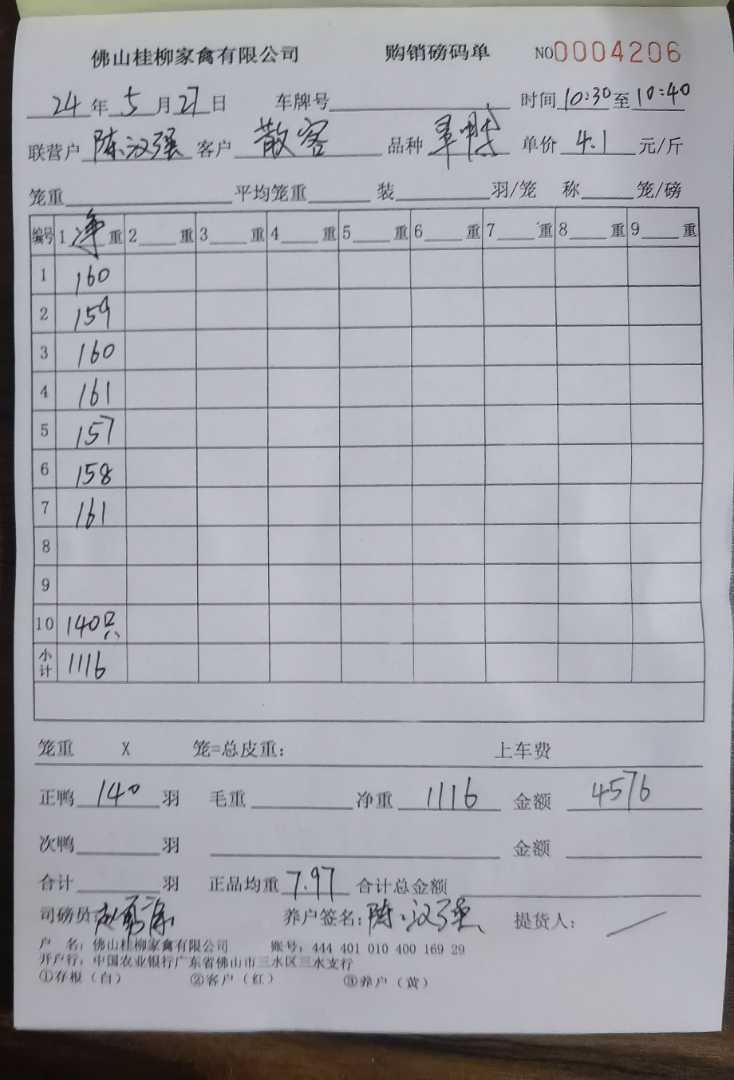 佛山桂柳家禽有限公司 购销磅码单 NO0004206
24年5月27日 车牌号 时间10:30至10:40
联营户 陈汉强 客户 散客 品种 单价 4.1 元/斤
笼重 平均笼重 装 羽/笼 称 笼/磅
编号 1 净 重 2 重 3 重 4 重 5 重 6 重 7 重 8 重 9 重
1 160
2 159
3 160
4 161
5 157
6 158
7 161
8
9
10 140只
小计 1116
笼重 X 笼=总皮重: 上车费
正鸭 140 羽 毛重 净重 1116 金额 4576
次鸭 羽 金额
合计 羽 正品均重 7.97 合计总金额
司磅员: 养户签名: 陈汉强 提货人:
户 名: 佛山桂柳家禽有限公司 账号: 444 401 010 400 169 29
开户行: 中国农业银行广东省佛山市三水区三水支行
①存根(白) ②客户(红) ③养户(黄)